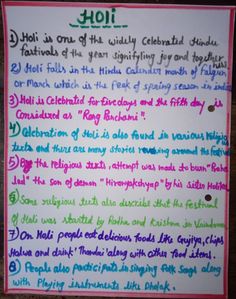 Holi
1) Holi is one of the widely celebrated Hindu
fastivals of the year signifyling joy and togetherness
2) Holi falls in the Hindu Calender month of Falgun
or March which is the Peak of spring season in india
3) Holi is Celebrated for five days and the fifth day is
Considered as "Rang Panchami".
4) Celebration of Holi is also found in various Religious
texts and there are many stories revolving around the festival
5) the religious texts, attempt was made to burn
the son of demon "Hiranyakshyap" by his sister Holika
6) Some religious texts also describe that the festival
of Holi was started by Radha and Krishna in Vrindavan
7) On Holi people eat delicious foods like Gujiya, chips
Halwa and drink 'Thandai' along with other food items.
8) People also participate in singing Folk Songs along
with Playing instruments like Dholak.